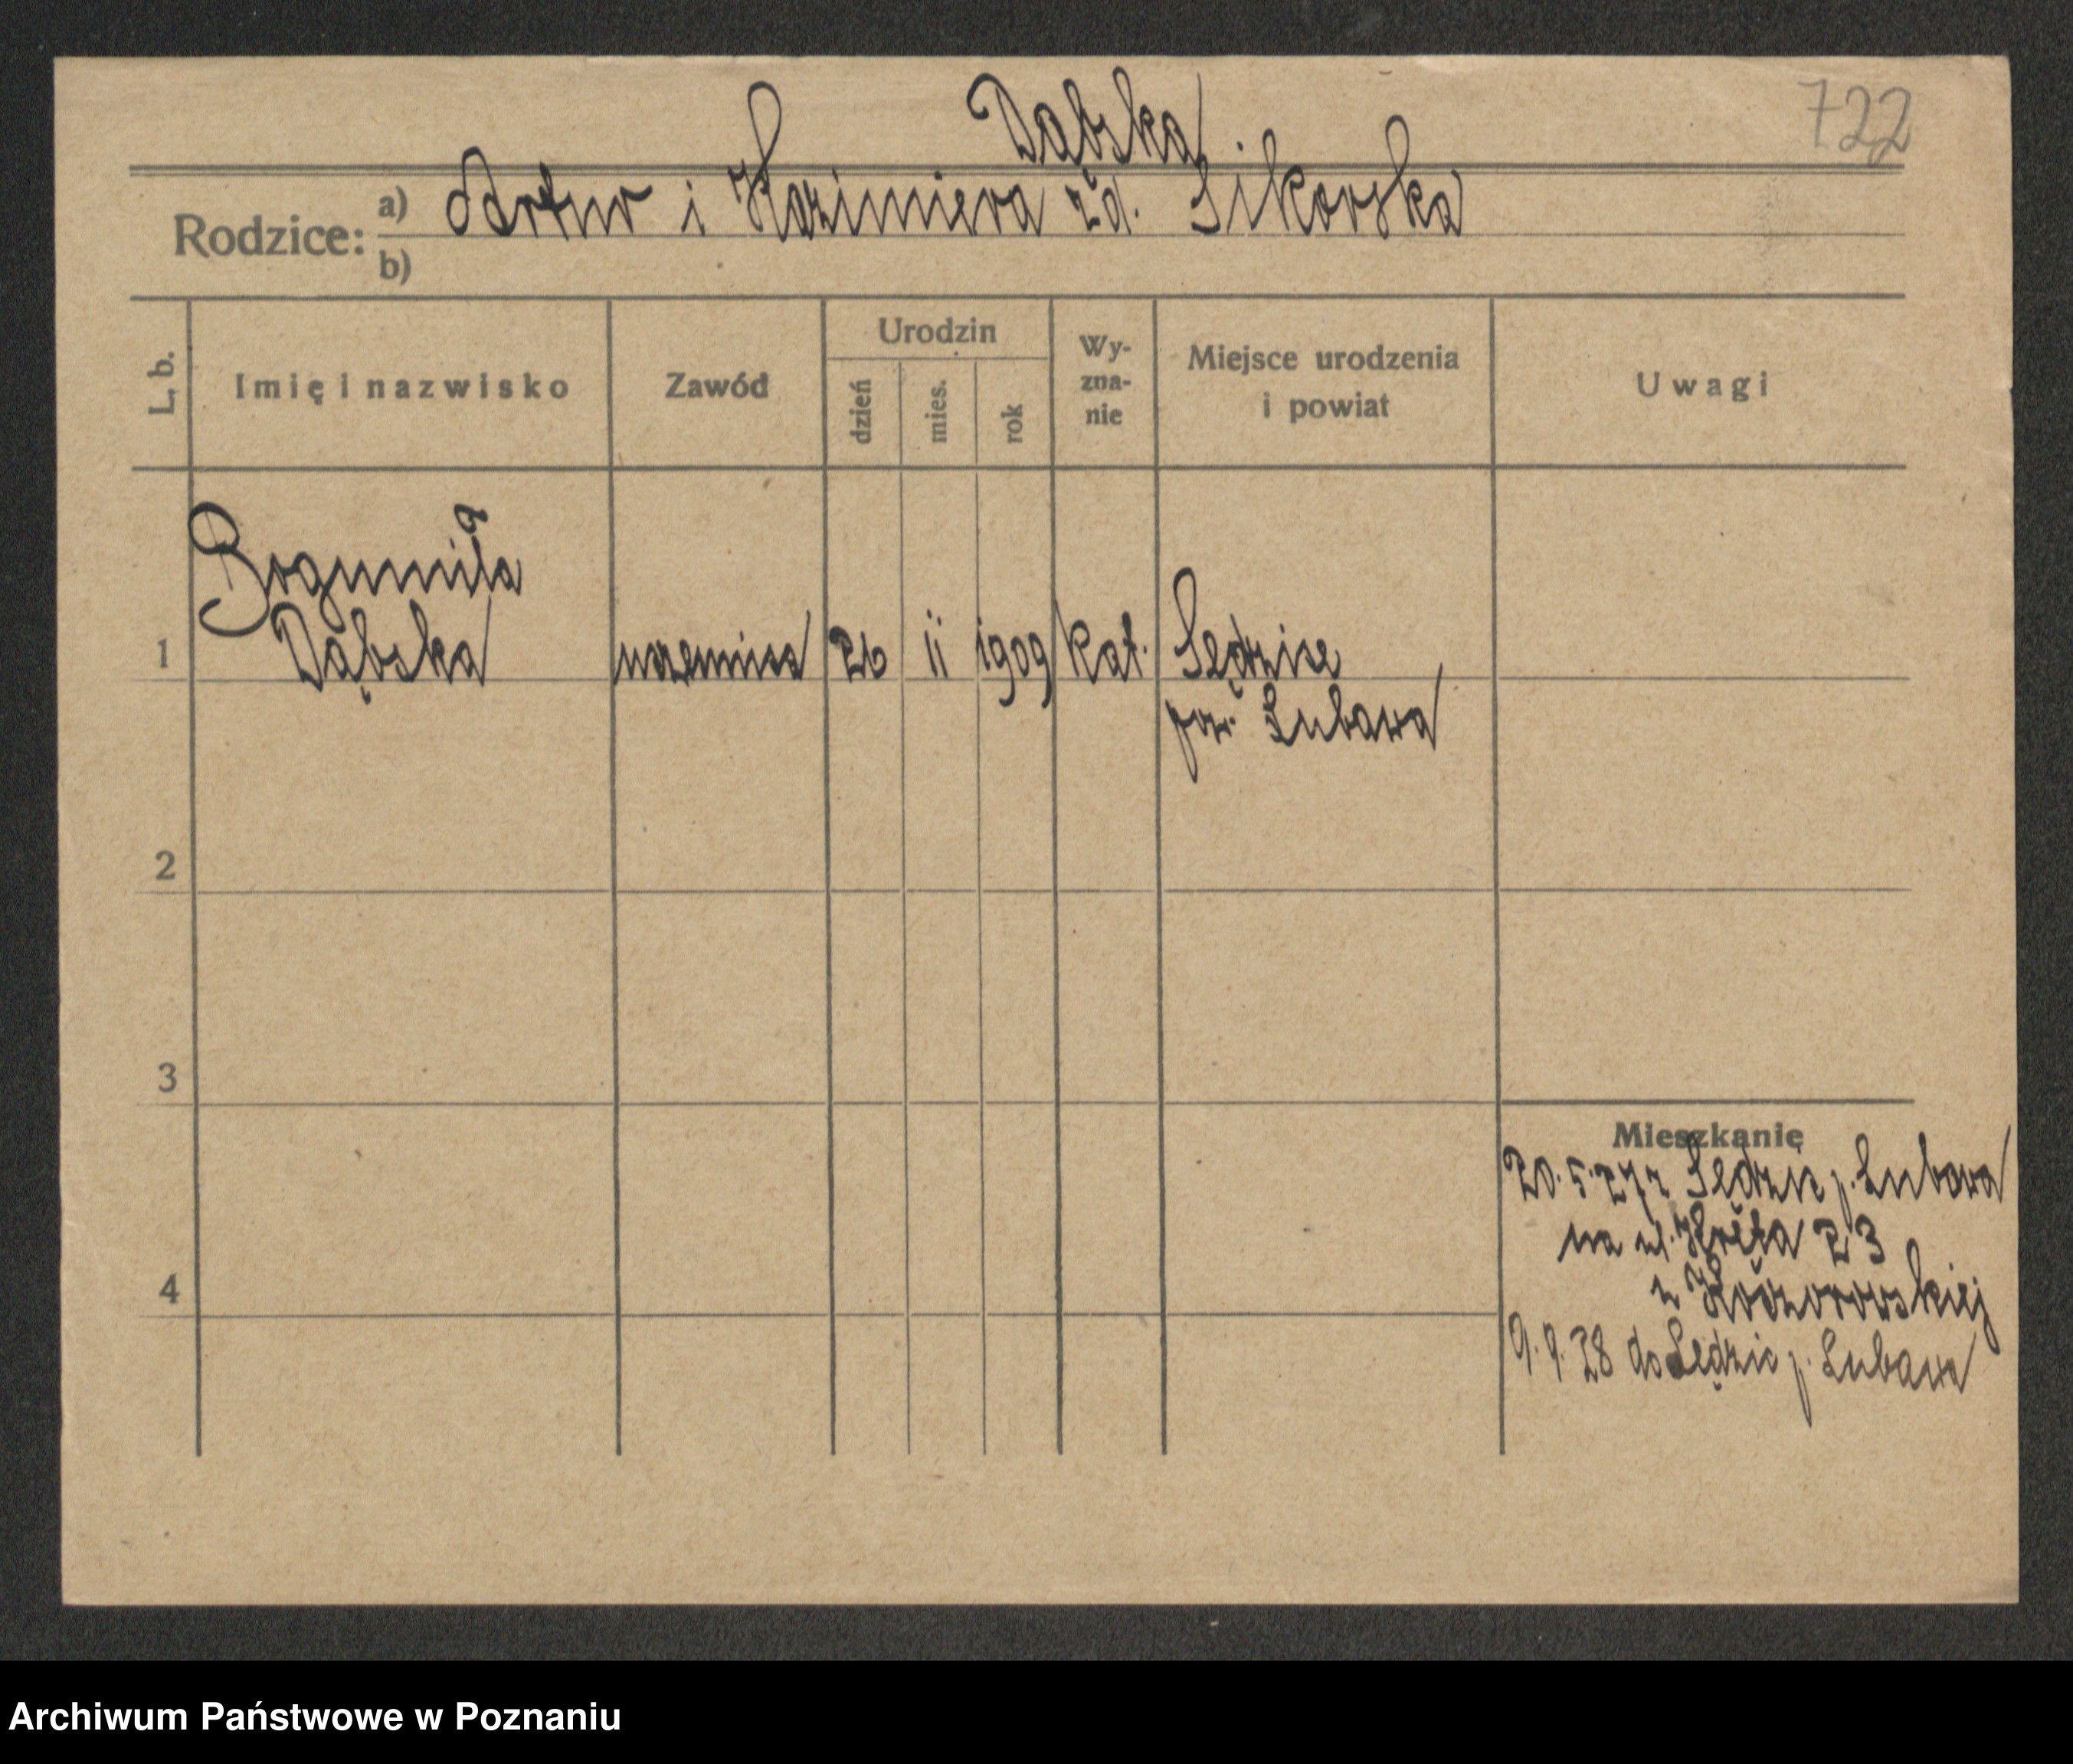 Dąbska
722
Rodzice: a) Artur i Kazimiera zd. Sikorska
b)
L. b.
Imię i nazwisko
Zawód
Urodzin
dzień
mies.
rok
Wy-
zna-
nie
Miejsce urodzenia
i powiat
Uwagi
Bogumiła
1 Dąbska uczennica 26 ii 1909 kat. Sędzice
pow. Lubawa
2
3
4
Mieszkanie
20.5.27 z Sędzic p. Lubawa
na ul. Kręta 23
z
9.9.28 do Sędzic p. Lubawa
Archiwum Państwowe w Poznaniu